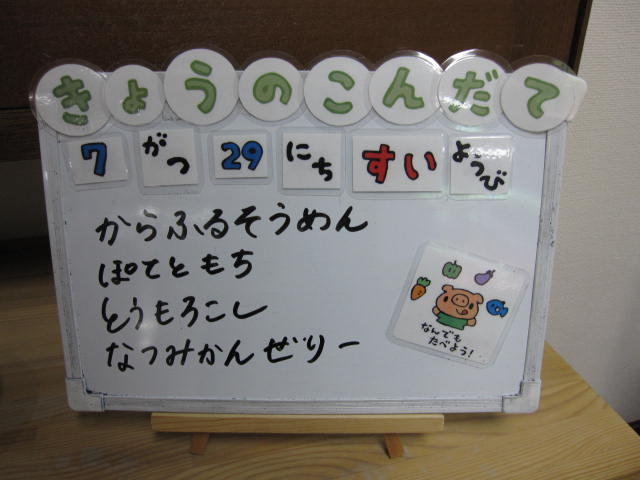 きょうのこんだて
7 がつ 29 にち すい ようび
からふるそうめん
ぽてともち
とうもろこし
なつみかんぜりー
なんでも
たべよう!